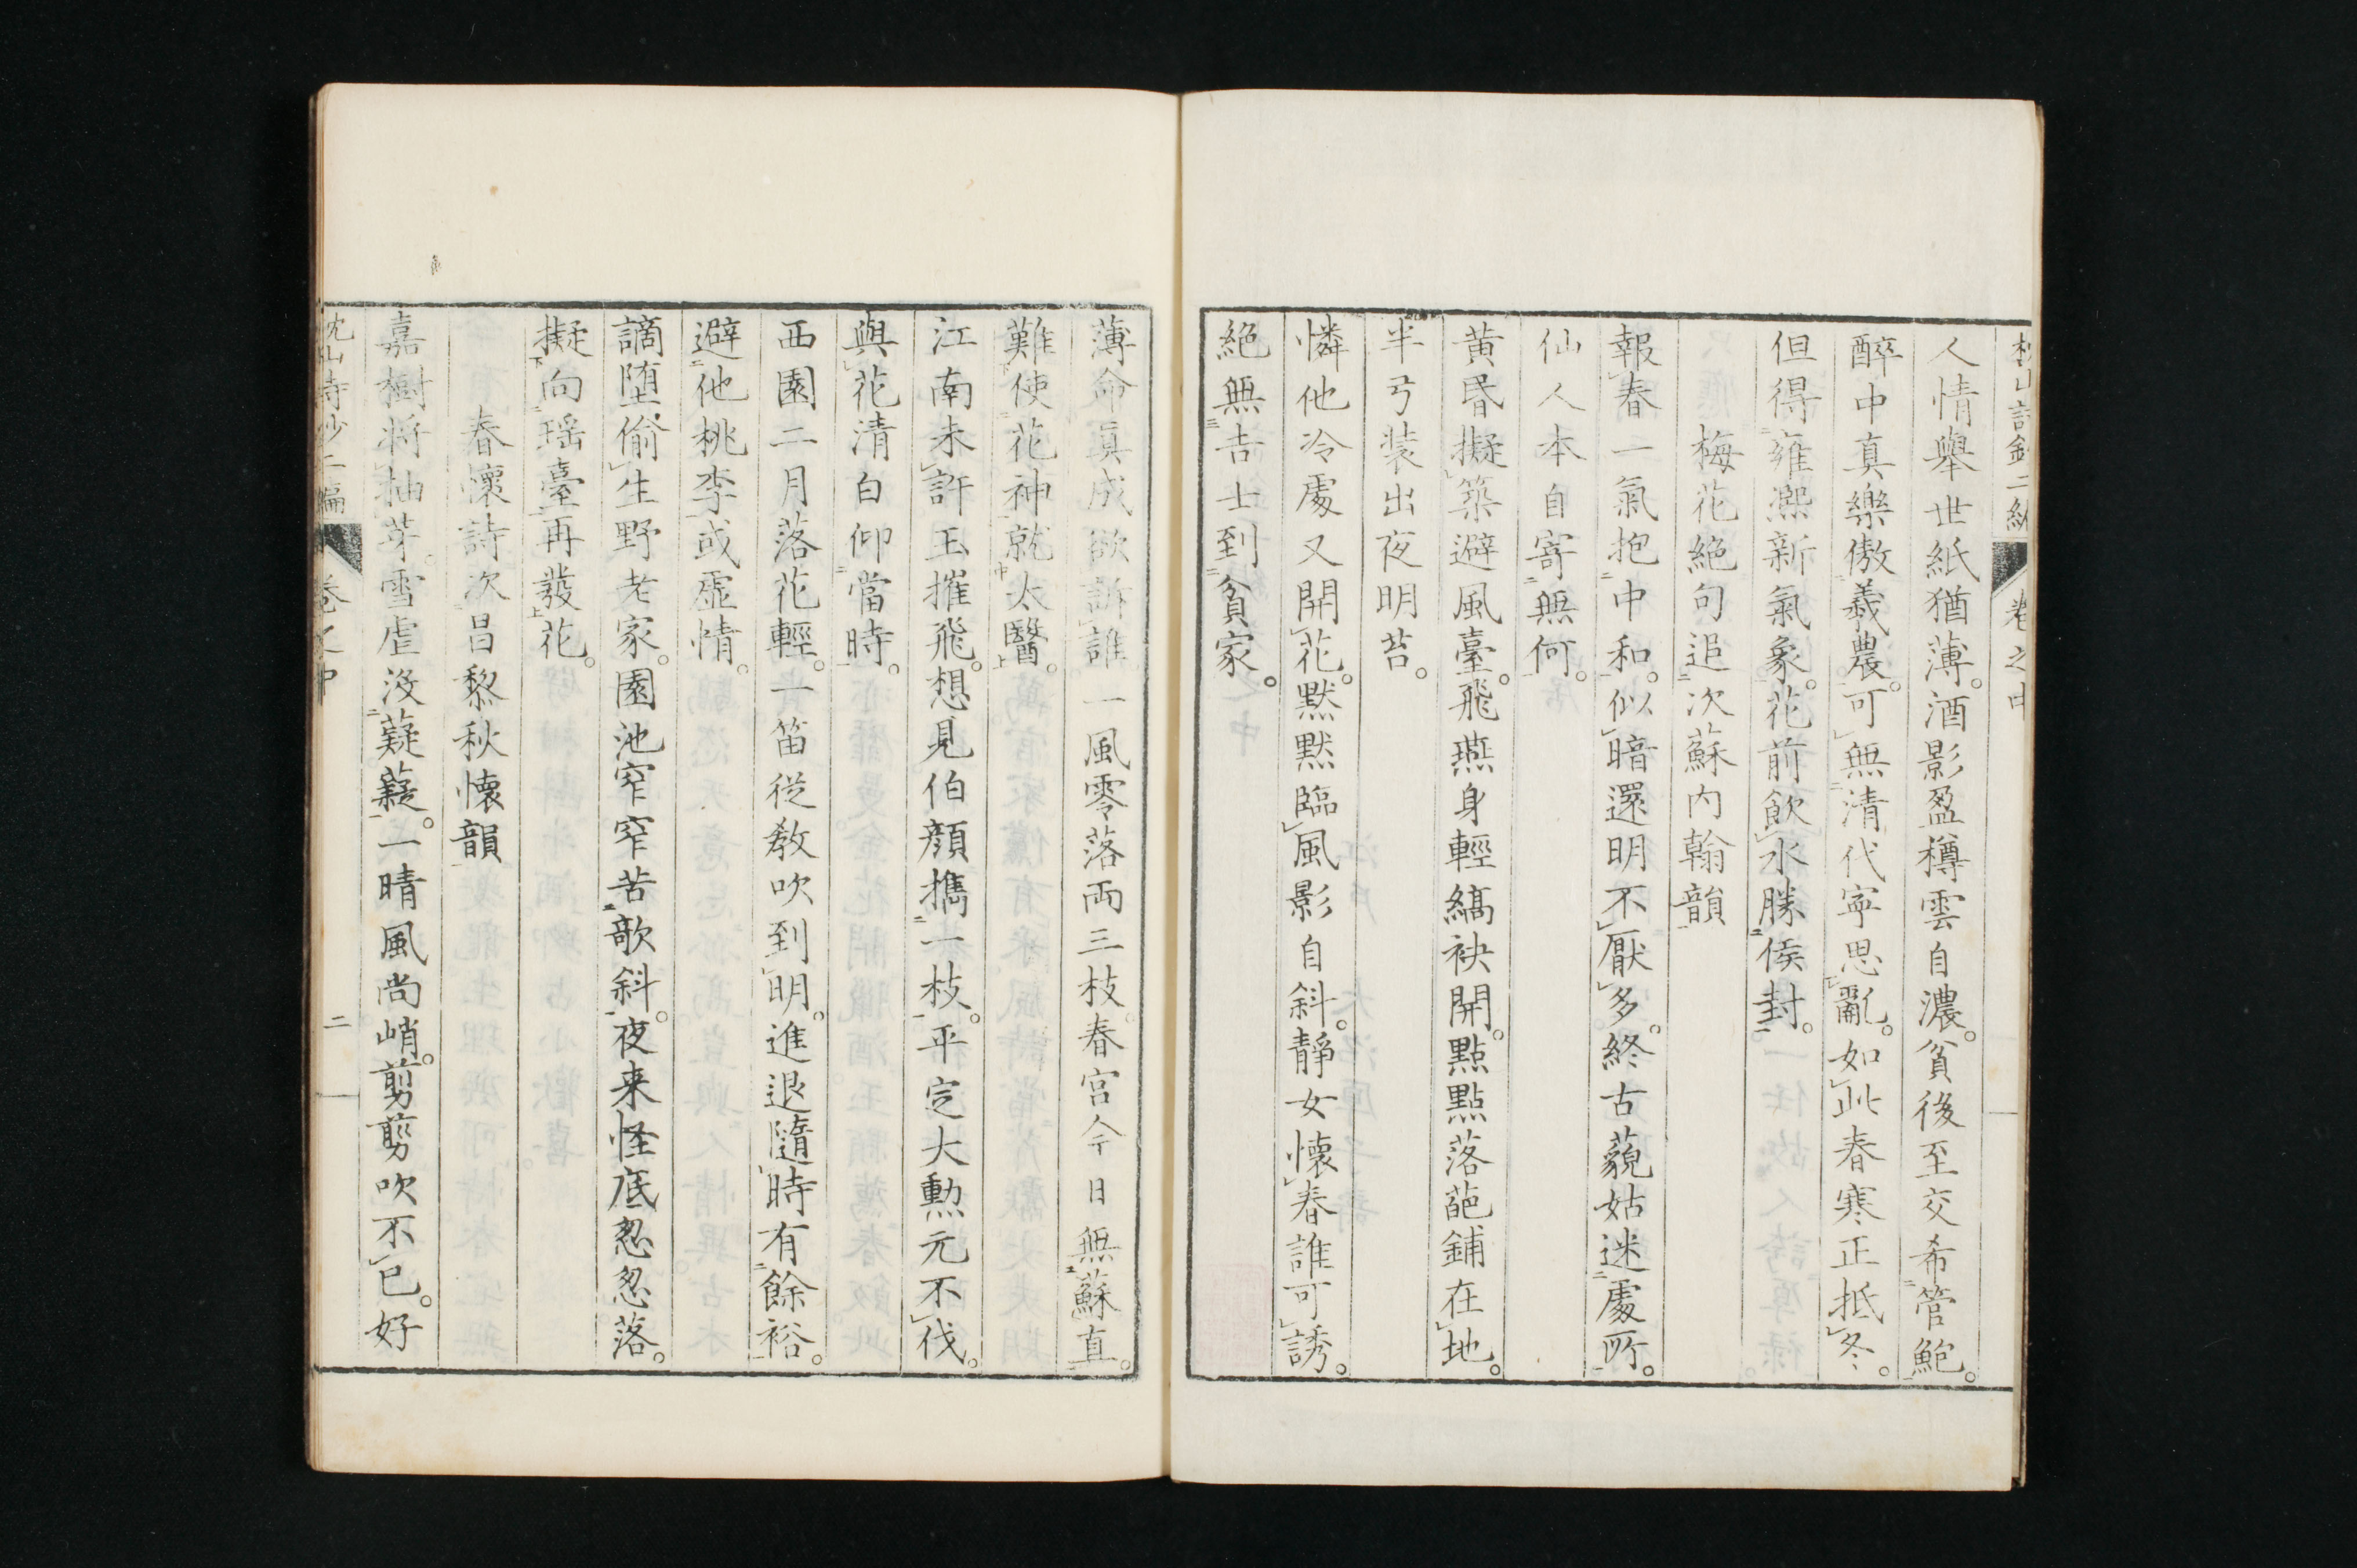 枕山詩鈔二編 卷之中
人情擧世紙猶薄。酒影盈樽雲自濃。貧後至交希管鮑。
醉中真樂傲羲農。可無清代寧思亂。如此春寒正抵冬。
但得雍熙新氣象。花前飲水勝侯封。
梅花絶句追次蘇内翰韻
報春一氣抱中和。似暗還明不厭多。終古藐姑迷處所。
仙人本自寄無何。
黄昏擬築避風臺。飛燕身輕縞袂開。點點落葩鋪在地。
半弓装出夜明苔。
憐他冷處又開花。默默臨風影自斜。靜女懷春誰可誘。
絶無吉士到貧家。
薄命真成欲訴誰。一風零落兩三枝。春宮今日無蘇直。
難使花神就太醫。
江南未許玉摧飛。想見伯顔攜一枝。平定大勲元不伐。
與花清白仰當時。
西園二月落花輕。一笛從教吹到明。進退隨時有餘裕。
避他桃李或虚情。
謫堕偷生野老家。園池窄窄苦欹斜。夜来怪底忽忽落。
擬向瑶臺再發花。
春懷詩次昌黎秋懷韻
嘉樹將抽芽。雪虐没薿薿。一晴風尚峭。剪剪吹不已。好
枕山詩鈔二編 卷之中 二